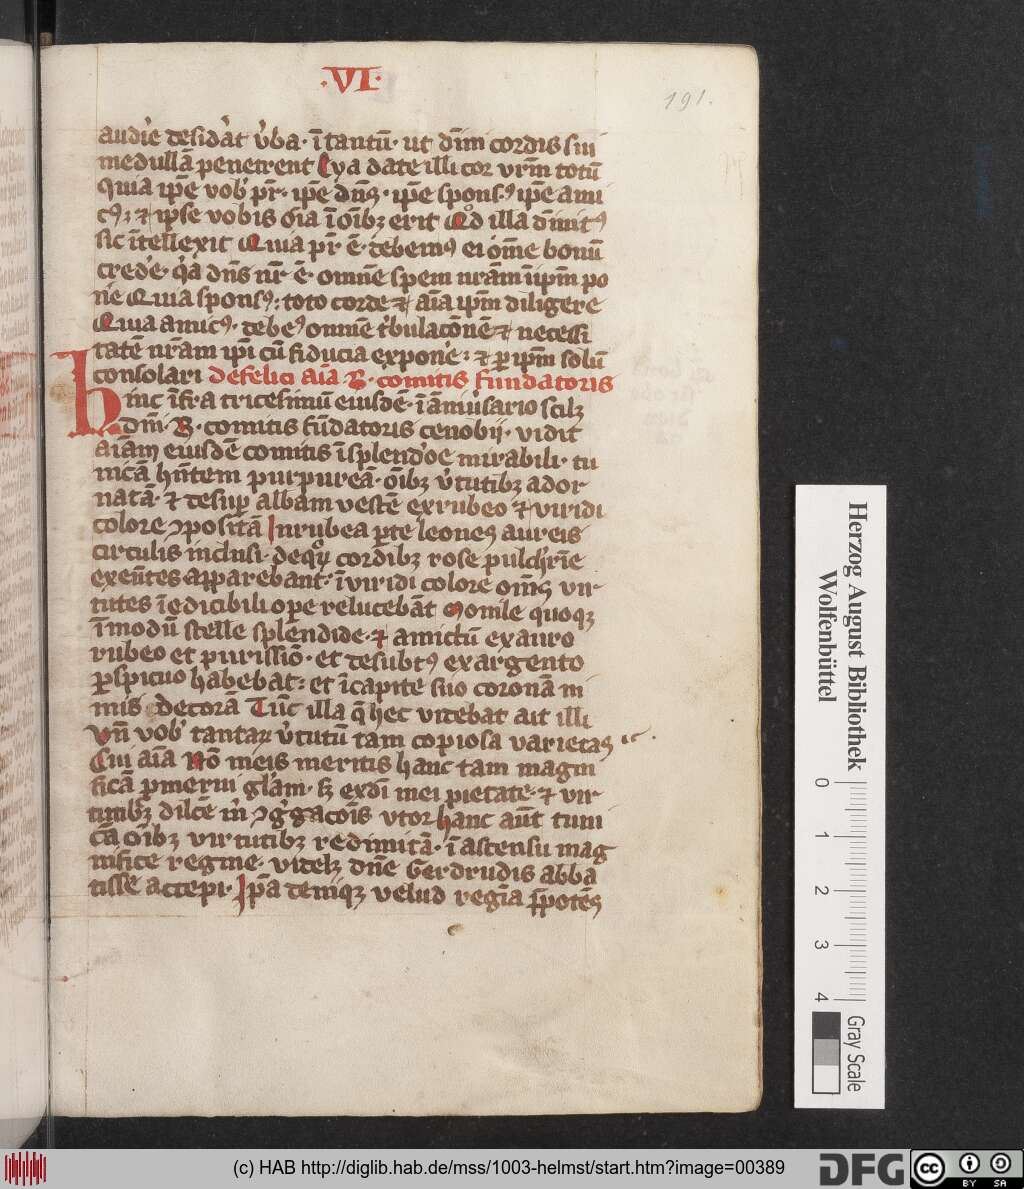 ·VI·
191.
audie͛ desida͛t v͛ba· ī tantū· ut dn̄i cordis sui
medullā penetrent Eya date illi cor vrm̄ totū
quia ip̄e vob͛ pr̄· ip̄e dn̄s· ip̄e spons⁹ ip̄e ami
c⁹; ⁊ ip̄se vobis oīa ī oīb; erit Qd̛ illa dīnit⁹
sic ītellexit Quia pr̄ ē· debem⁹ ei om̄e bonū
crede͛· q̛a dn̄s nr̄ ē· omnē spem nr̄am ī ip̄m po
ne͛ Quia spons⁹: toto corde ⁊ aīa ip̄m diligere
Quia amic⁹· debe⁹ omnē t͛bulacōnē ⁊ necessi
tatē nr̄am ip̄i cū fiducia expone͛: ⁊ ꝑ ip̄m solū
consolari De felici aīa B· comitis fundatoris
hinc īfra tricesimū eiusdē· ī āniu͛sario scil;
dn̄i· B· comitis fūdatoris cenobij· vidit
aīam eiusdē comitis ī splendo͛e mirabili· tu
nicā hn̄tem purpureā· oīb; v͛tutib; ador
natā· ⁊ desup͛ albam vestē ex rubeo ⁊ viridi
colore ꝯpositā In rubea ꝑte leones aureis
circulis inclusi· de quꝝ cordib; rose pulchr̄ie
exeūtes apparebant· ī viridi colore om̄s vir
tutes īedicibili opere relucebāt Monile quoq;
ī modū stelle splendide· ⁊ amictū ex auro
rubeo et purissio͛· et desubt⁹ ex argento
ꝑspicuo habebat: et ī capite suo coronā ni
mis decorā Tūc illa q̄ hec videbat ait illi
Vn̄ vob͛ tantaꝝ v͛tutū tam copiosa varietas
Cui aīa Nō meis meritis hanc tam magni
ficā ꝓmerui glām· s; ex dī mei pietate· ⁊ vir
tutib; dilcē m̄ ꝯg͛gacōis utor hanc aūt tuni
cā oīb; virtutib; redimitā· ī ascensu mag
nifice regine· videl; dn̄e Gerdrudis abba
tisse accepi· Ip̄a deniq; velud regīa p̄potēs
Herzog August Bibliothek
Wolfenbüttel
0 1 2 3 4
Gray Scale
(c) HAB http://diglib.hab.de/mss/1003-helmst/start.htm?image=00389
DFG
cc
BY SA